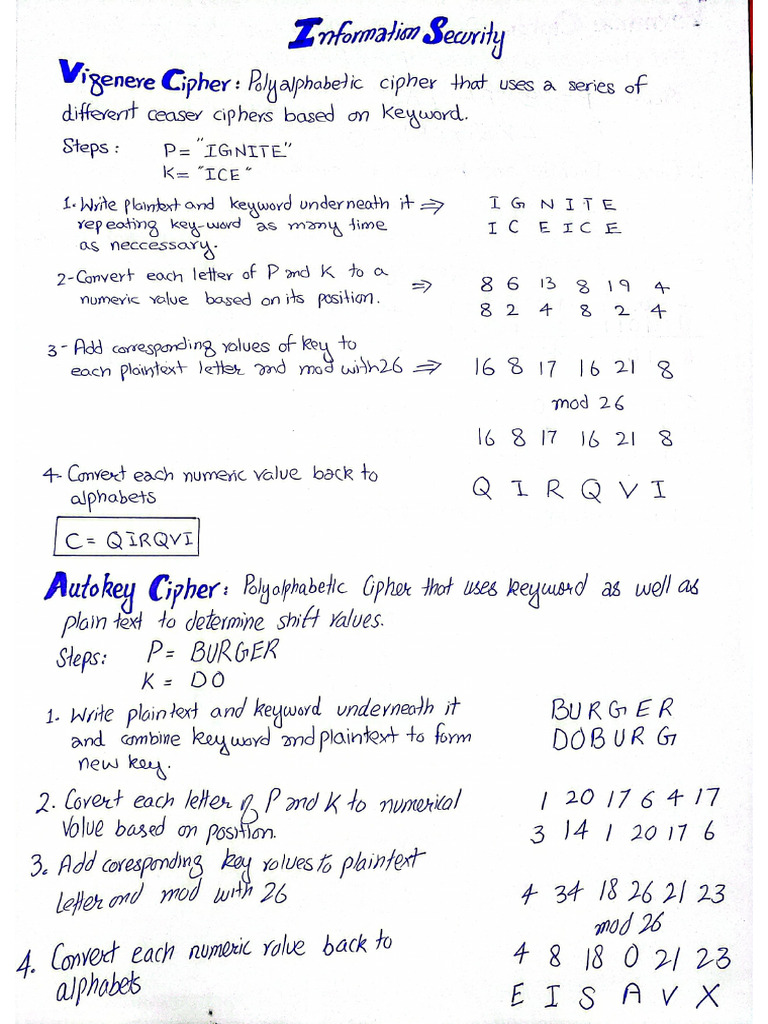 Information Security
Vigenere Cipher: Polyalphabetic cipher that uses a series of
different ceaser ciphers based on keyword.
Steps: P= "IGNITE"
K= "ICE"
1. Write plaintext and keyword underneath it ⇒ I G N I T E
repeating key-word as many time I C E I C E
as neccessary.
2-Convert each letter of P and K to a ⇒ 8 6 13 8 19 4
numeric value based on its position. 8 2 4 8 2 4
3- Add corresponding values of key to
each plaintext letter and mod with 26 ⇒ 16 8 17 16 21 8
mod 26
16 8 17 16 21 8
4- Convert each numeric value back to
alphabets Q I R Q V I
C = QIRQVI
Autokey Cipher: Polyalphabetic Cipher that uses keyword as well as
plain text to determine shift values.
Steps: P= BURGER
K = DO
1. Write plaintext and keyword underneath it BURGER
and combine keyword and plaintext to form DOBURG
new key.
2. Covert each letter of P and K to numerical 1 20 17 6 4 17
value based on position. 3 14 1 20 17 6
3. Add coresponding key values to plaintext
letter and mod with 26 4 34 18 26 21 23
mod 26
4. Convert each numeric value back to 4 8 18 0 21 23
alphabets E I S A V X